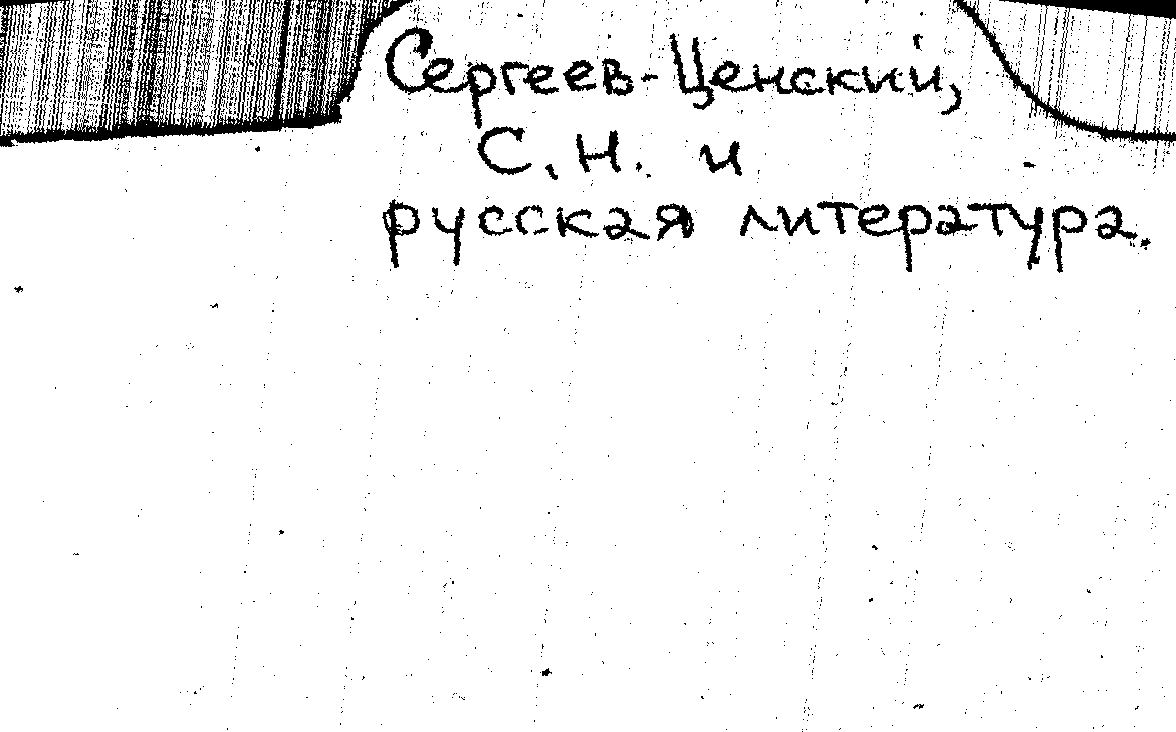 Сергеев-Ценский,
С.Н. и
русская литература.